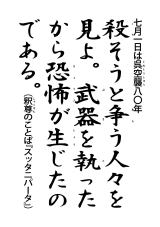 七月二日は呉空襲八〇年
殺そうと争う人々を
見よ。武器を執った
から恐怖が生じたの
である。
(釈尊のことば『スッタニパータ』)